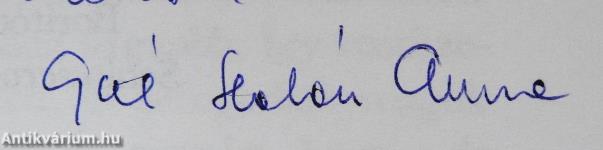 Gál Szalón Anna
Antikvárium.hu